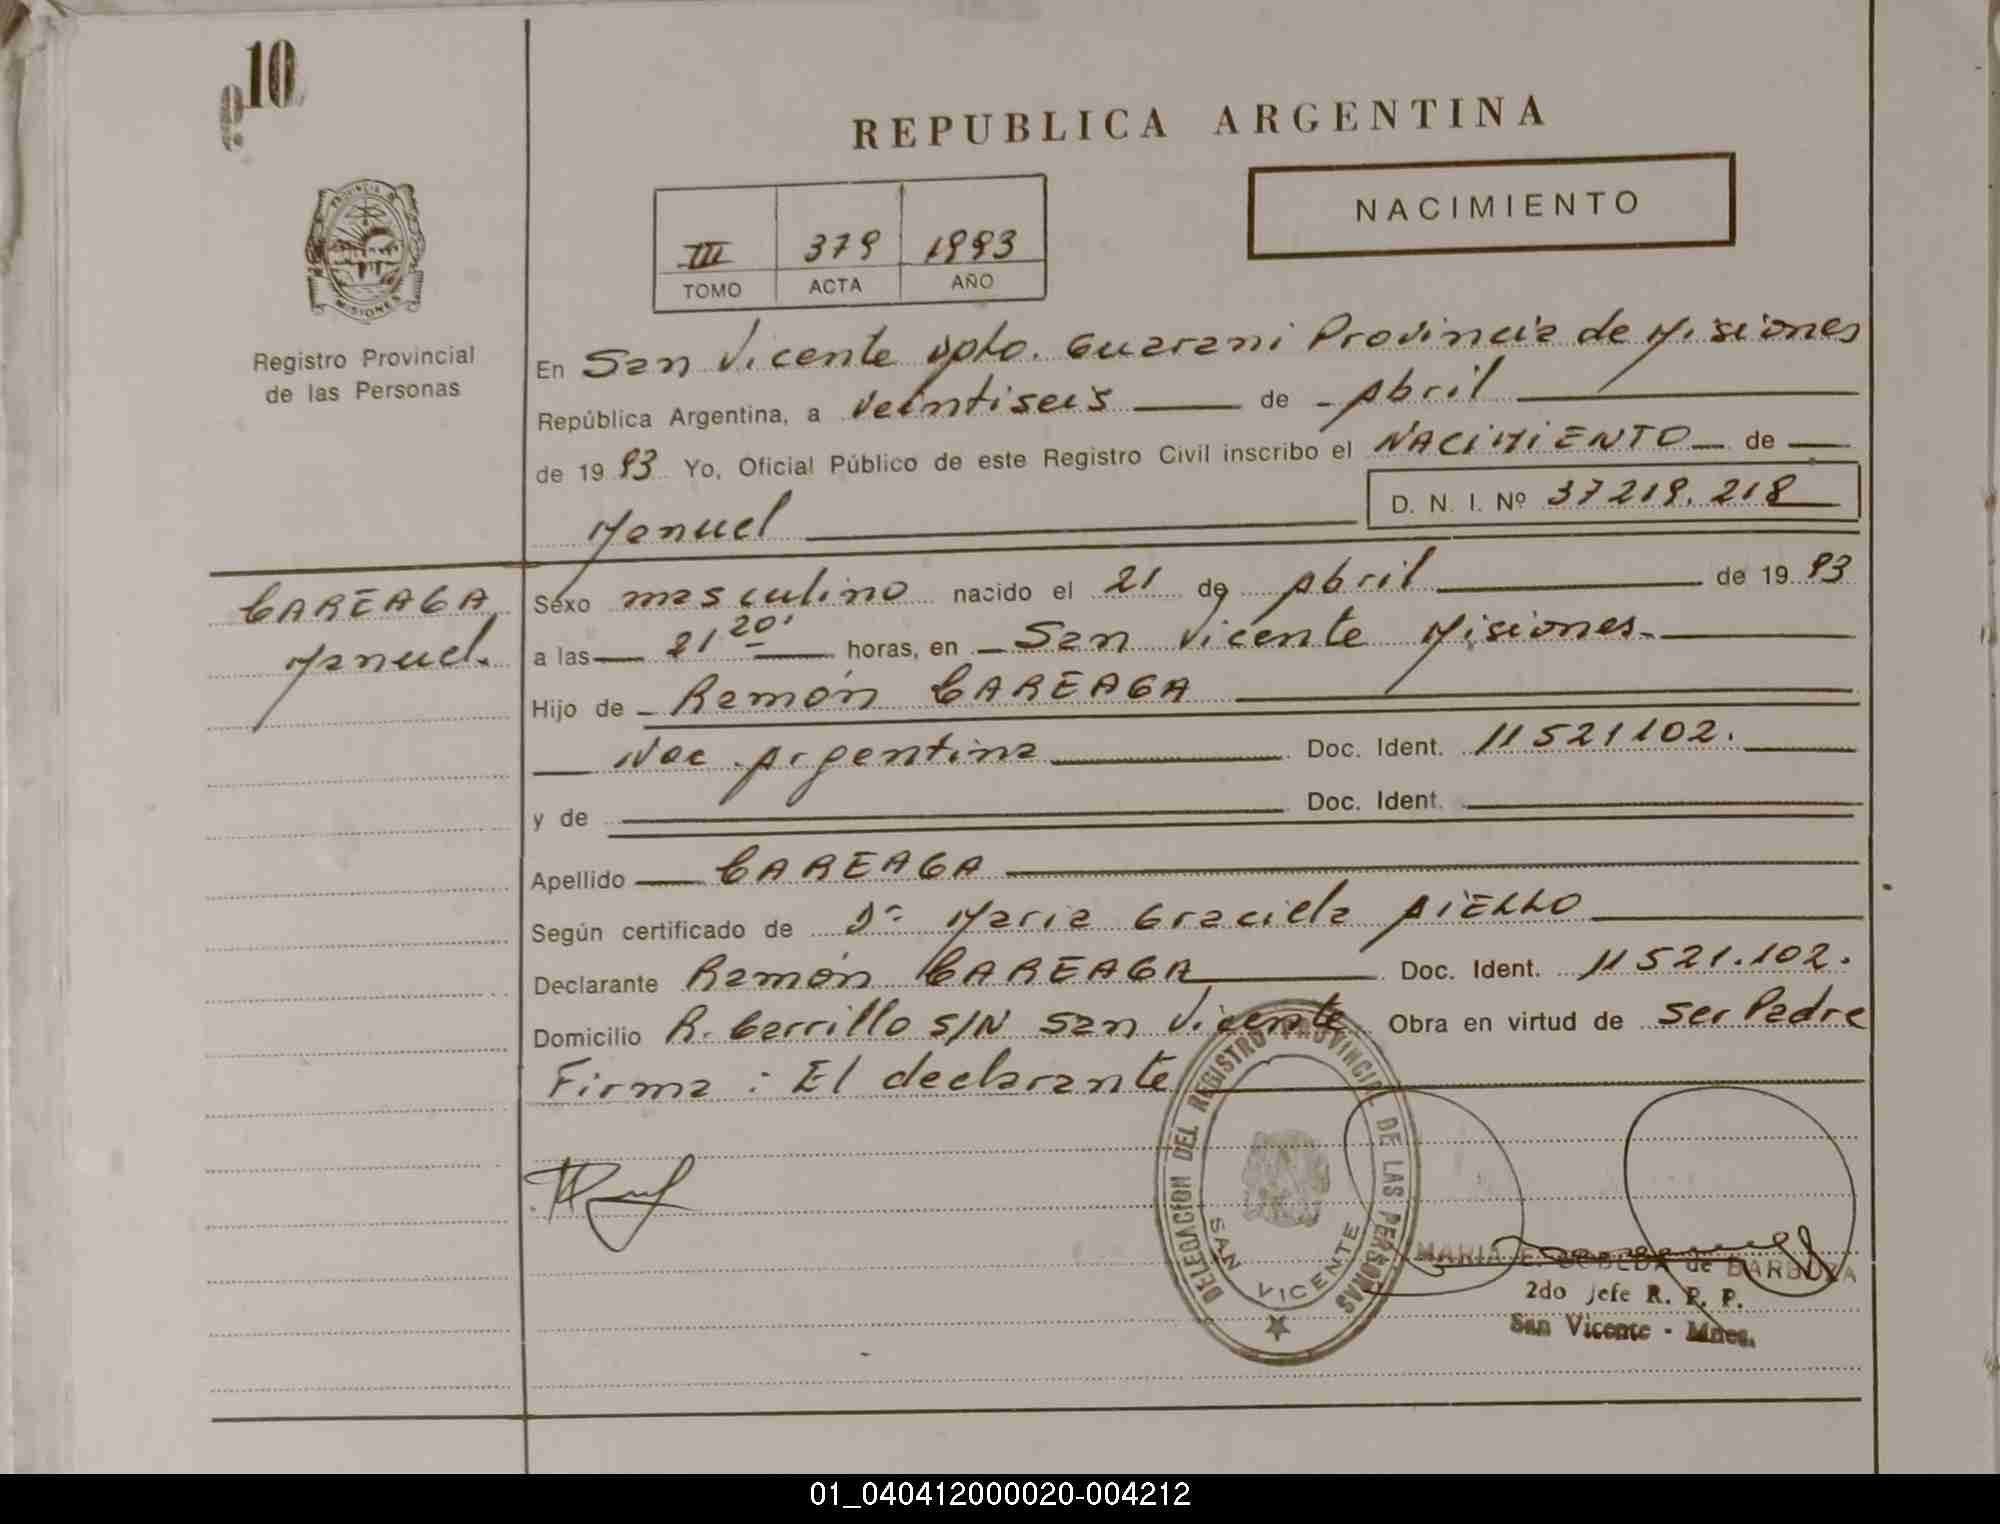 10
REPUBLICA ARGENTINA
NACIMIENTO
III 379 1993
TOMO ACTA AÑO
PROVINCIA DE MISIONES
Registro Provincial
de las Personas
En San Vicente Dpto. Guarani Provincia de Misiones
República Argentina, a veintiseis de Abril
de 19 93 Yo, Oficial Público de este Registro Civil inscribo el NACIMIENTO de
D. N. I. Nº 37219.218
Manuel
CAREAGA
Manuel.
Sexo masculino nacido el 21 de Abril de 19 93
a las 21 20' horas, en San Vicente Misiones.
Hijo de Ramón CAREAGA
Nac Argentina Doc. Ident. 11521102.
y de Doc. Ident.
Apellido CAREAGA
Según certificado de Dra Maria Graciela AIELLO
Declarante Ramón CAREAGA Doc. Ident. 11521.102.
Domicilio R. Carrillo S/N San Vicente Obra en virtud de Ser Padre
Firma : El declarante
DELEGACION DEL REGISTRO PROVINCIAL DE LAS PERSONAS
SAN VICENTE
MARIA E. de BARBOZA
2do Jefe R. P. P.
San Vicente - Mnes.
01_040412000020-004212